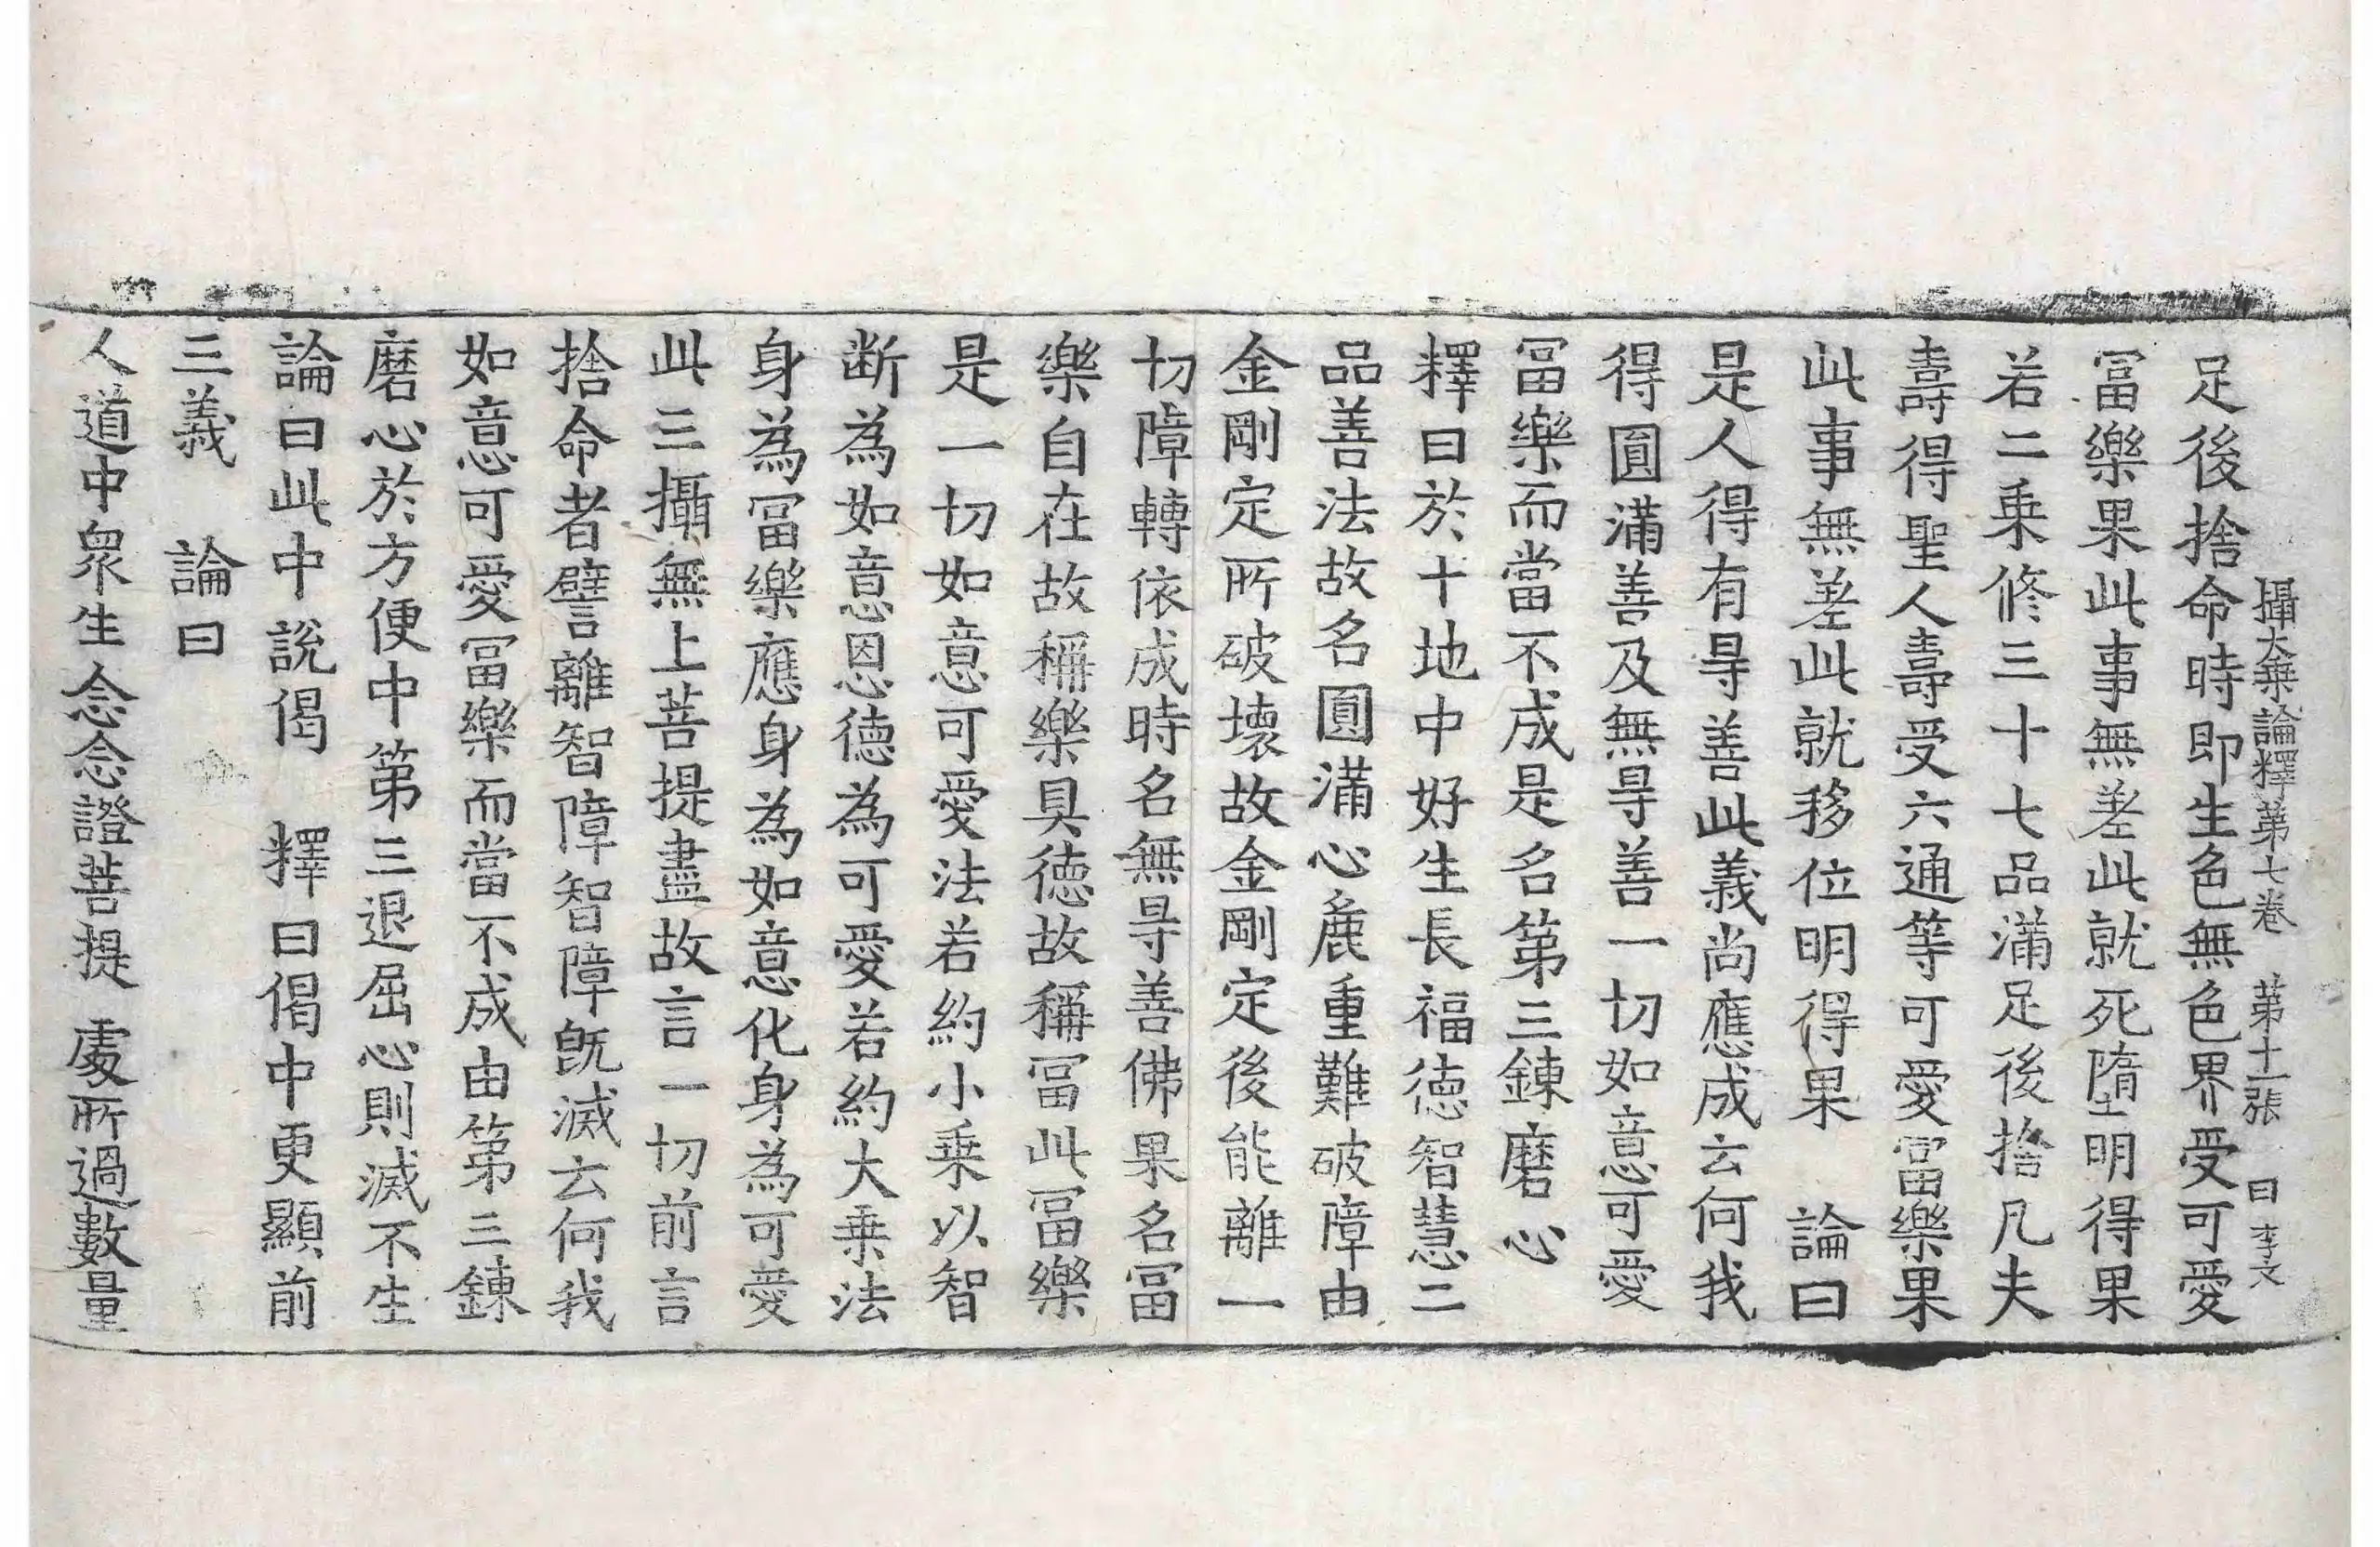 攝大乗論釋第七卷　第十一張　曰　李文
足後捨命時即生色無色界受可愛
冨樂果此事無差此就死墮明得果
若二乗修三十七品滿足後捨凡夫
壽得聖人壽受六通等可愛冨樂果
此事無差此就移位明得果　論曰
是人得有㝵善此義尚應成云何我
得圓滿善及無㝵善一切如意可愛
冨樂而當不成是名第三鍊磨心
釋曰於十地中好生長福徳智慧二
品善法故名圓滿心麁重難破障由
金剛定所破壞故金剛定後能離一
切障轉依成時名無㝵善佛果名冨
樂自在故稱樂具徳故稱冨此冨樂
是一切如意可愛法若約小乗以智
断為如意恩徳為可愛若約大乗法
身為冨樂應身為如意化身為可愛
此三攝無上菩提盡故言一切前言
捨命者譬離智障智障旣滅云何我
如意可愛冨樂而當不成由第三鍊
磨心於方便中第三退屈心則滅不生
論曰此中說偈　釋曰偈中更顯前
三義　論曰
人道中衆生念念證菩提　䖏所過數量